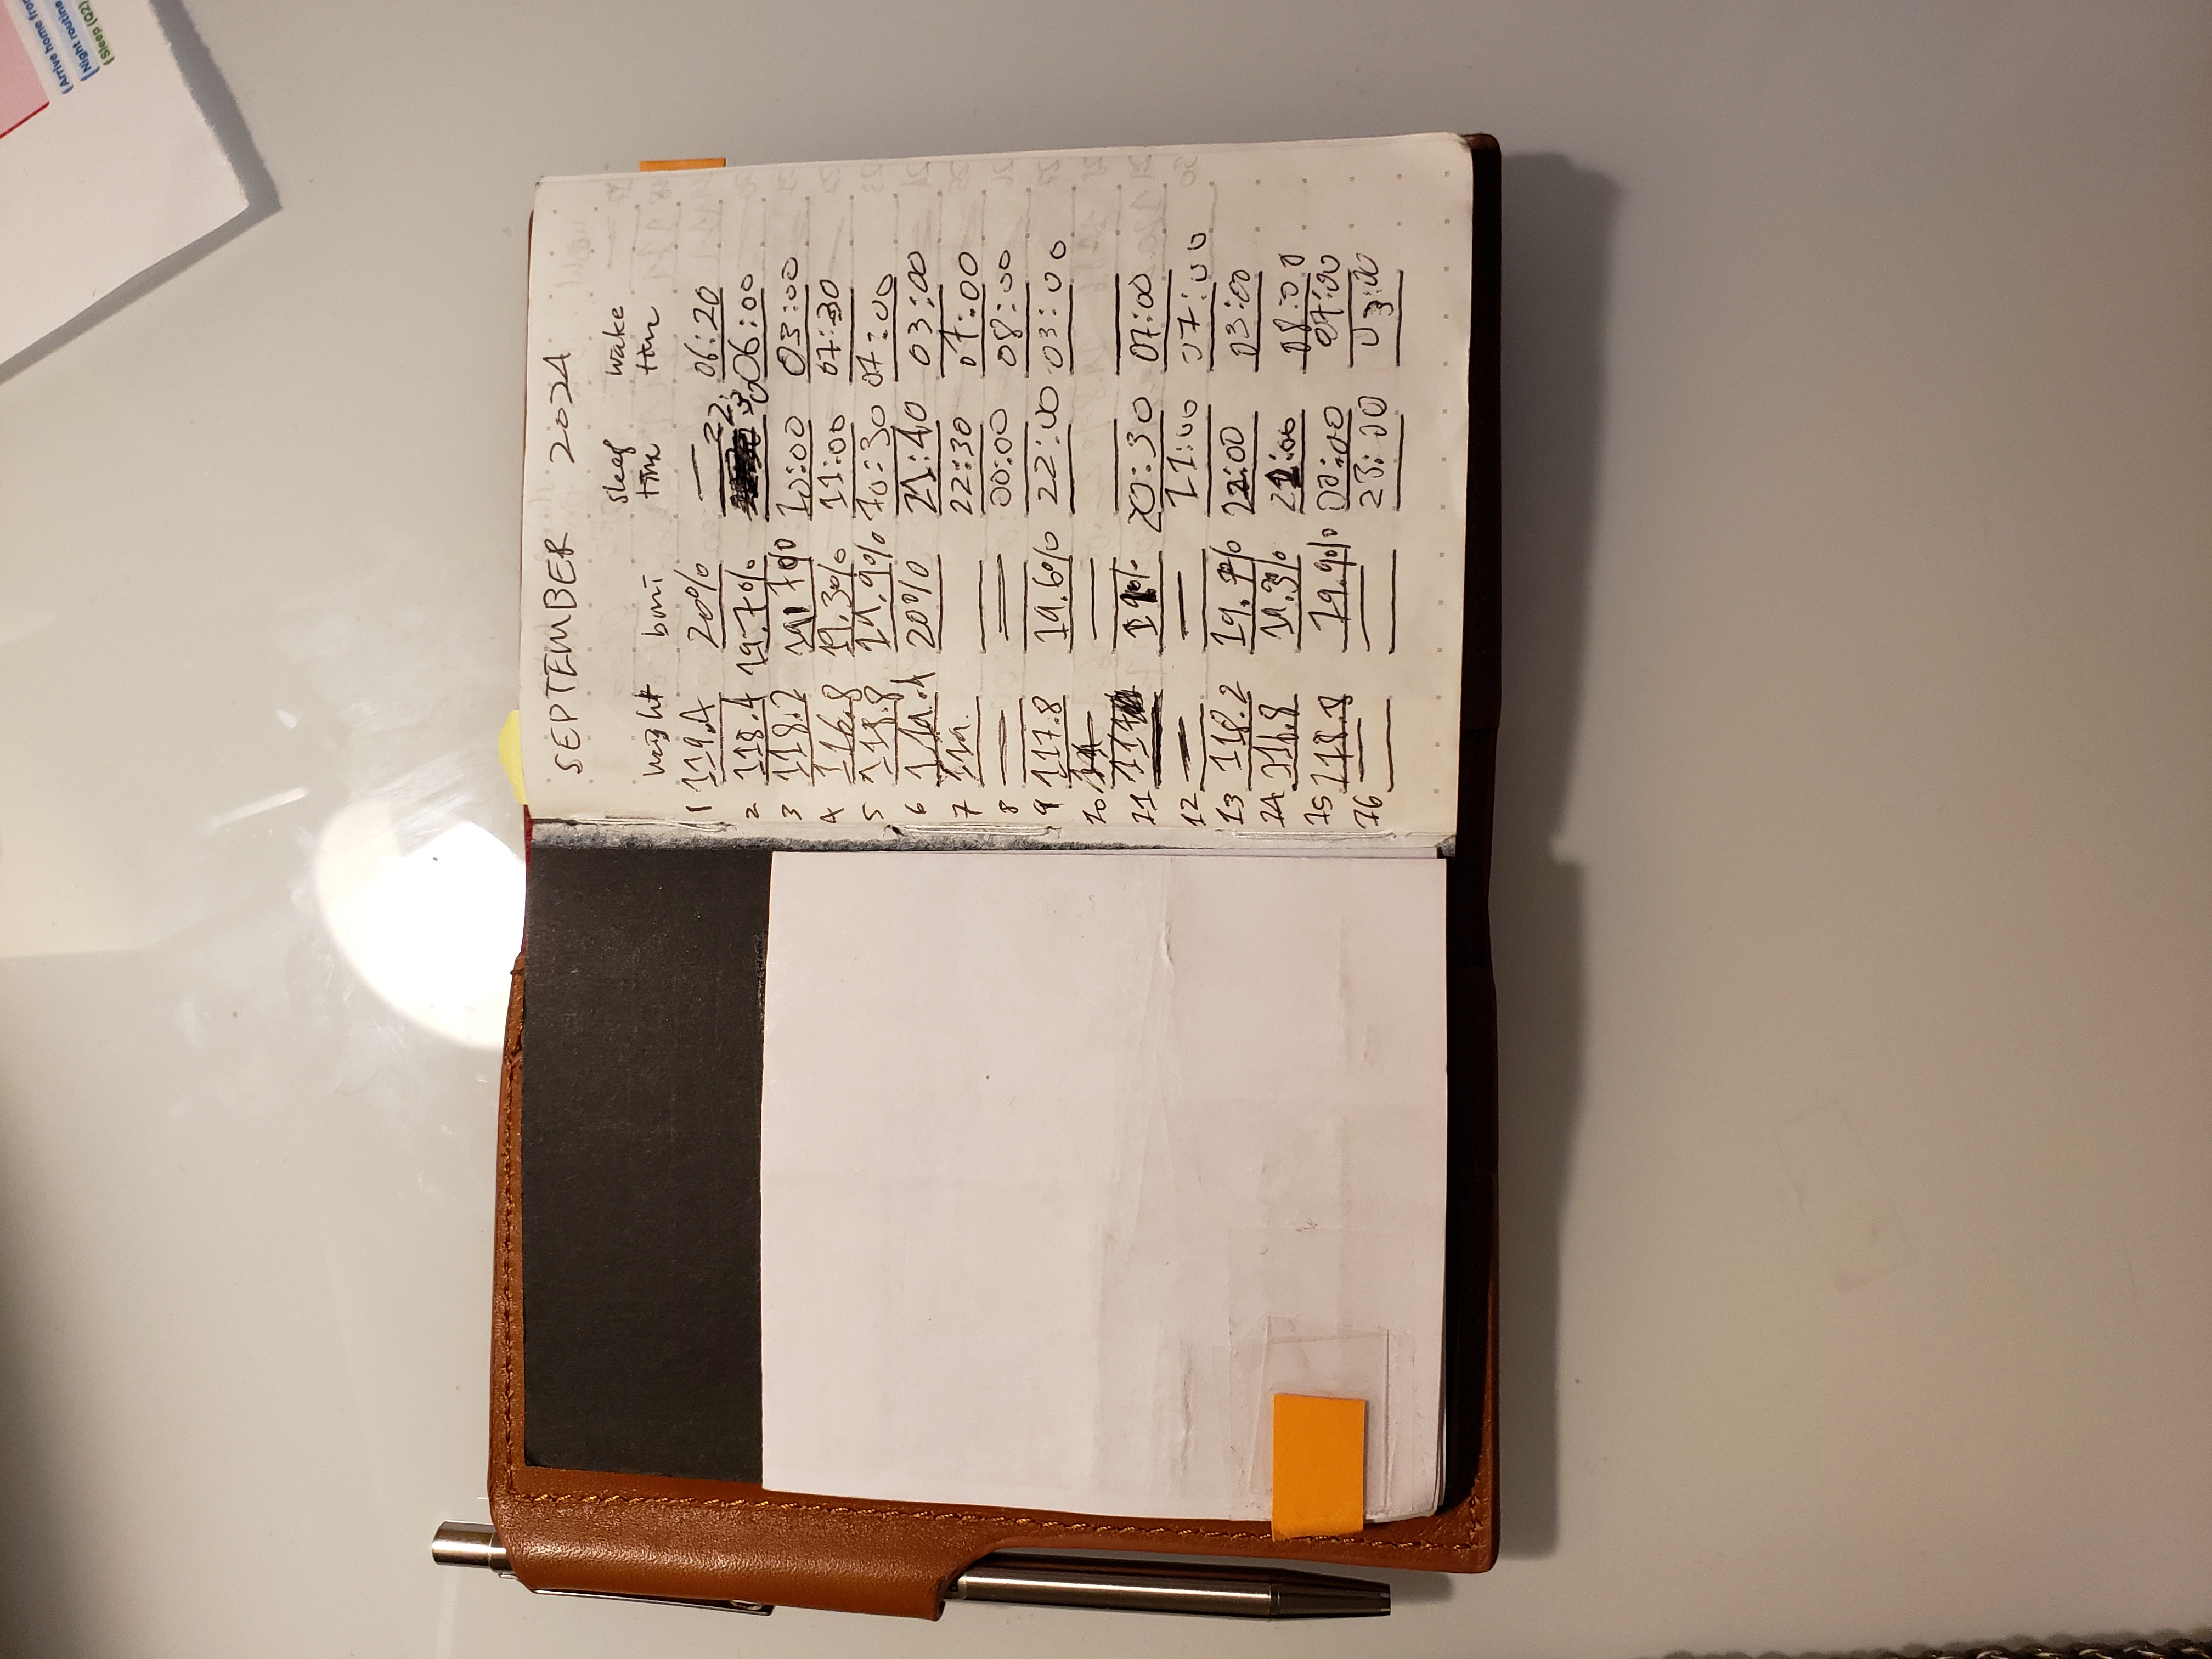 Arrive home from
Night routine
Sleep (Q2)
SEPTEMBER 2024
sleep wake
weight bmi time time
1 119.4 20% — 06:20
2 118.4 19.7% 22:30 06:00
3 118.2 19.7% 10:00 03:00
4 116.8 19.3% 11:00 07:30
5 118.8 19.9% 10:30 07:00
6 119.4 20% 21:40 03:00
7 119. 22:30 07:00
8 — — 00:00 08:00
9 117.8 19.6% 22:00 03:00
10 — —
11 117 19% 20:30 07:00
12 — — 11:00 07:00
13 118.2 19.7% 22:00 03:00
14 116.8 19.3% 21:00 08:00
15 118.8 19.9% 00:00 07:00
16 — — 23:00 03:00